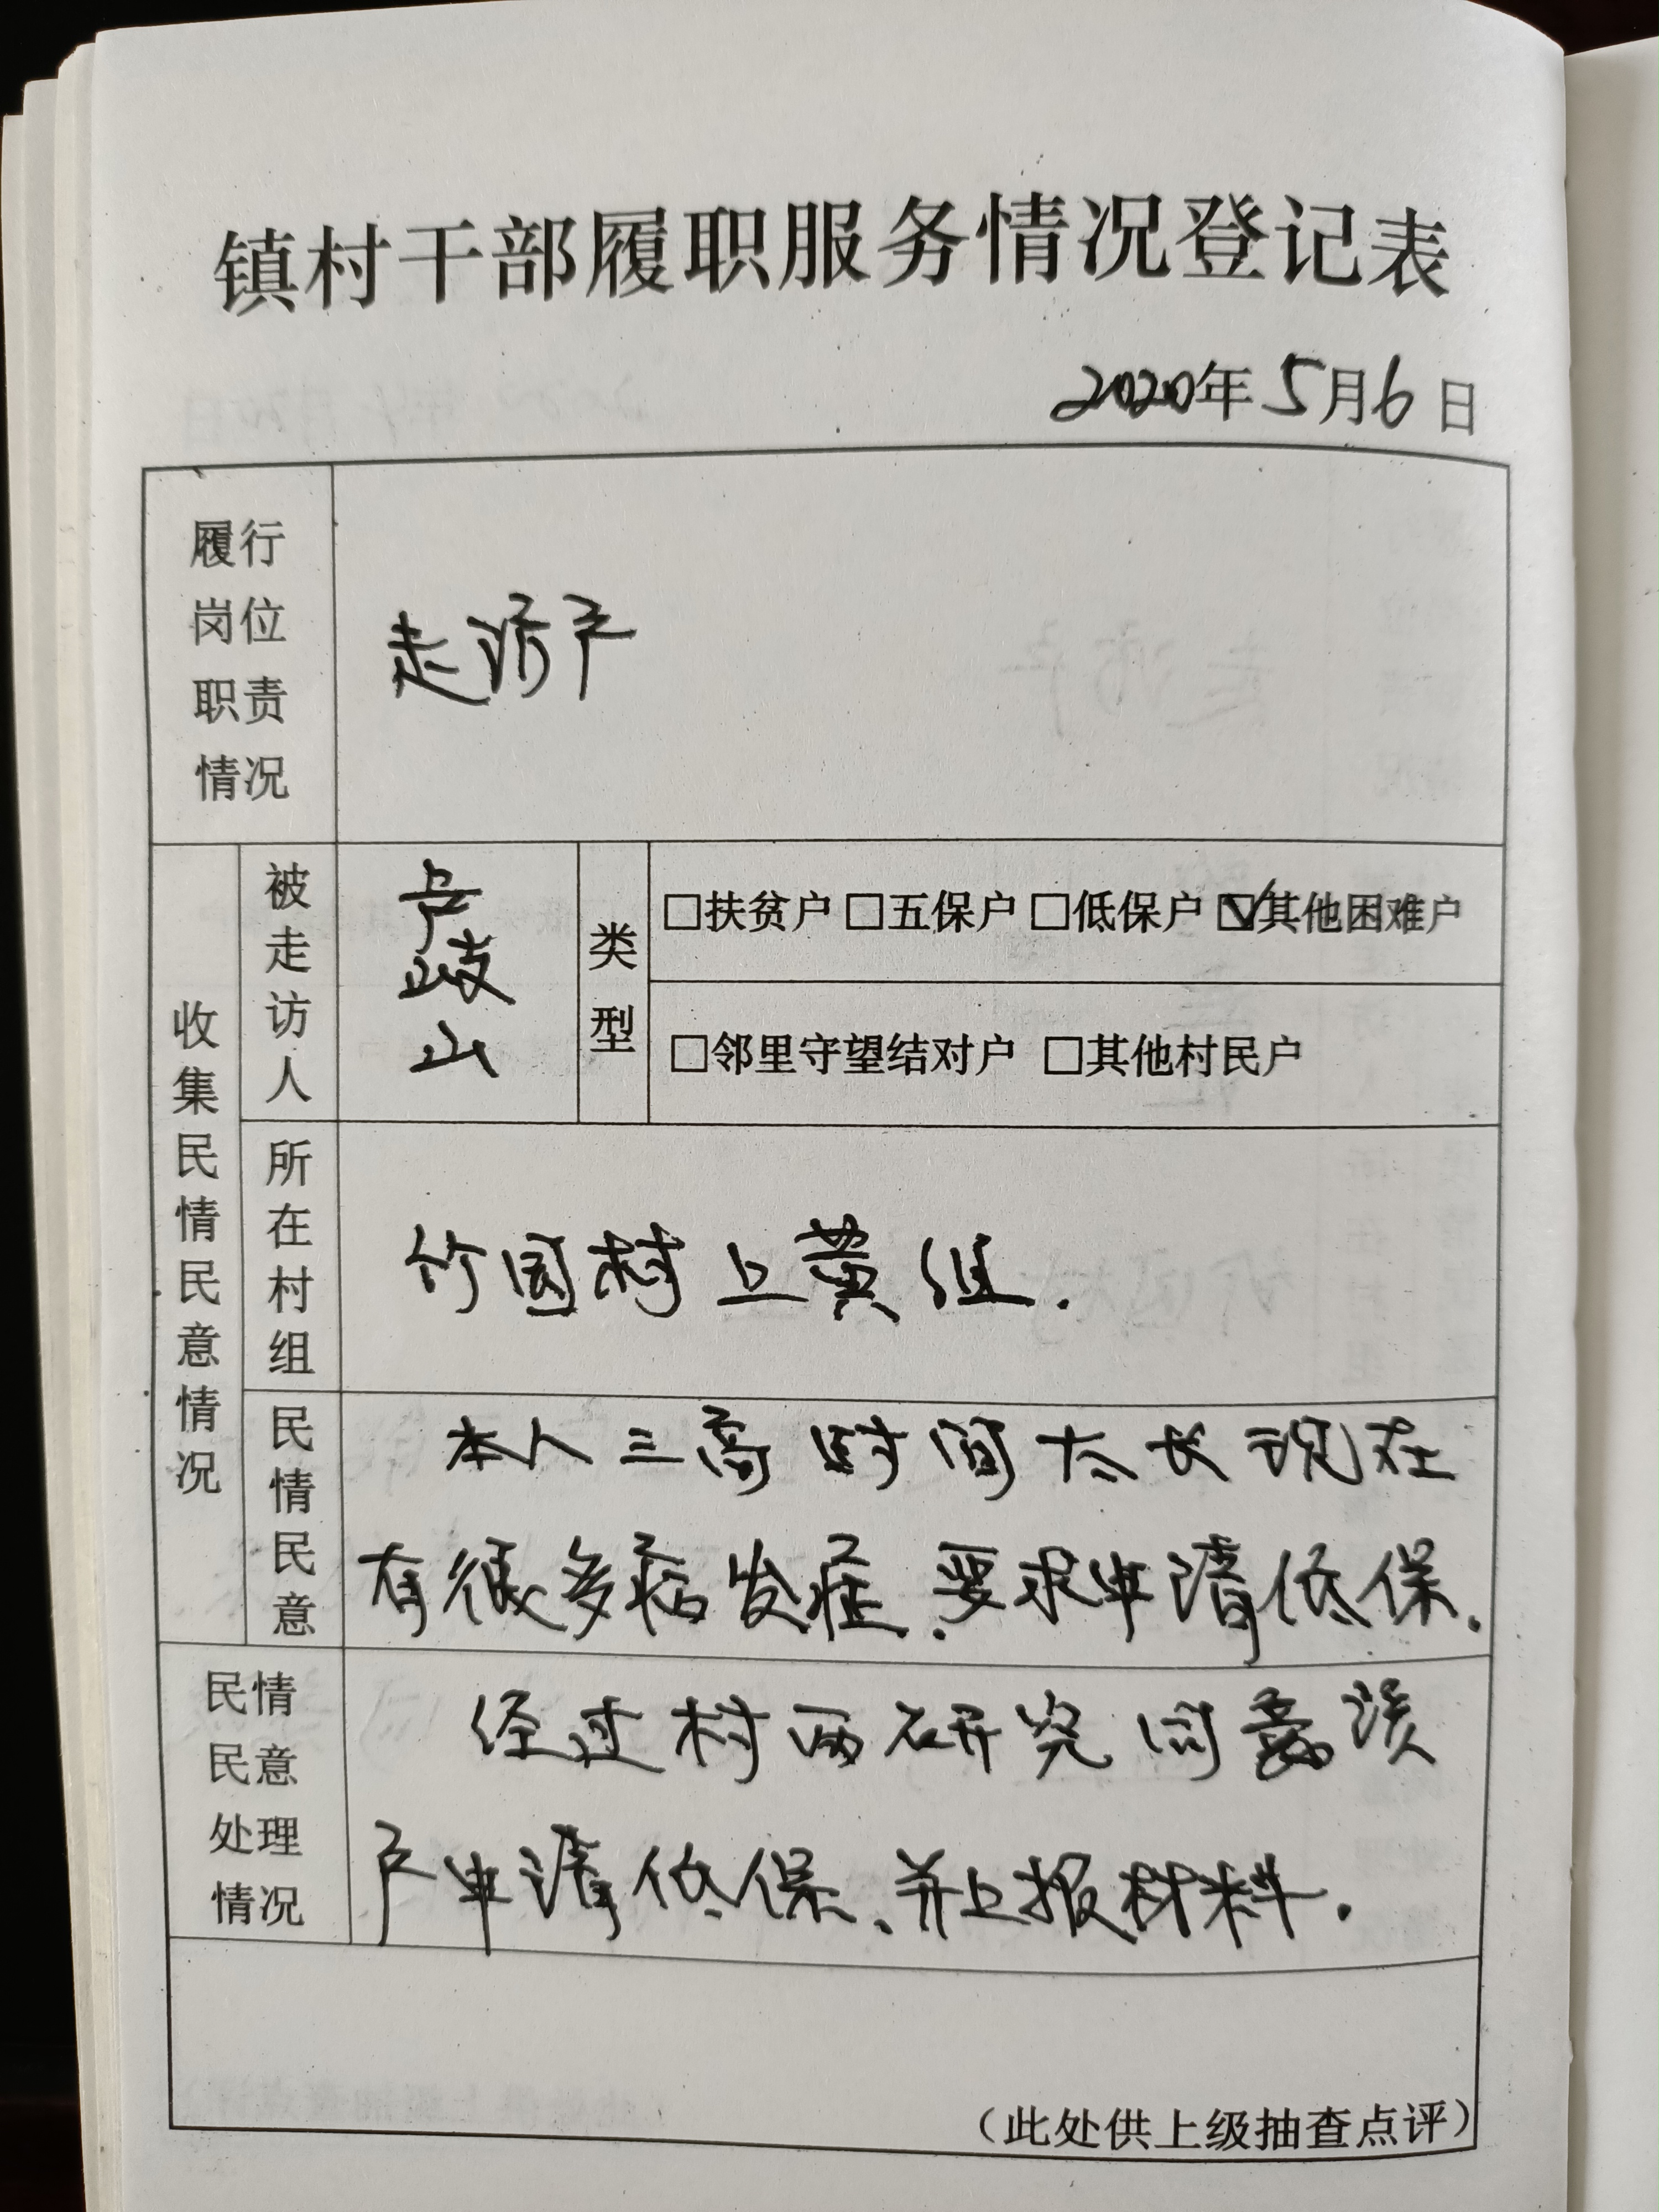 镇村干部履职服务情况登记表
2020年5月6日
履行
岗位
职责
情况
走访户
收集民情民意情况
被走访人
卢岐山
类型
□扶贫户 □五保户 □低保户 ☑其他困难户
□邻里守望结对户 □其他村民户
所在村组
竹园村上黄组.
民情民意
本人三高时间太长现在
有很多病发症.要求申请低保.
民情
民意
处理
情况
经过村两研究同意该
户申请低保、并上报材料.
（此处供上级抽查点评）